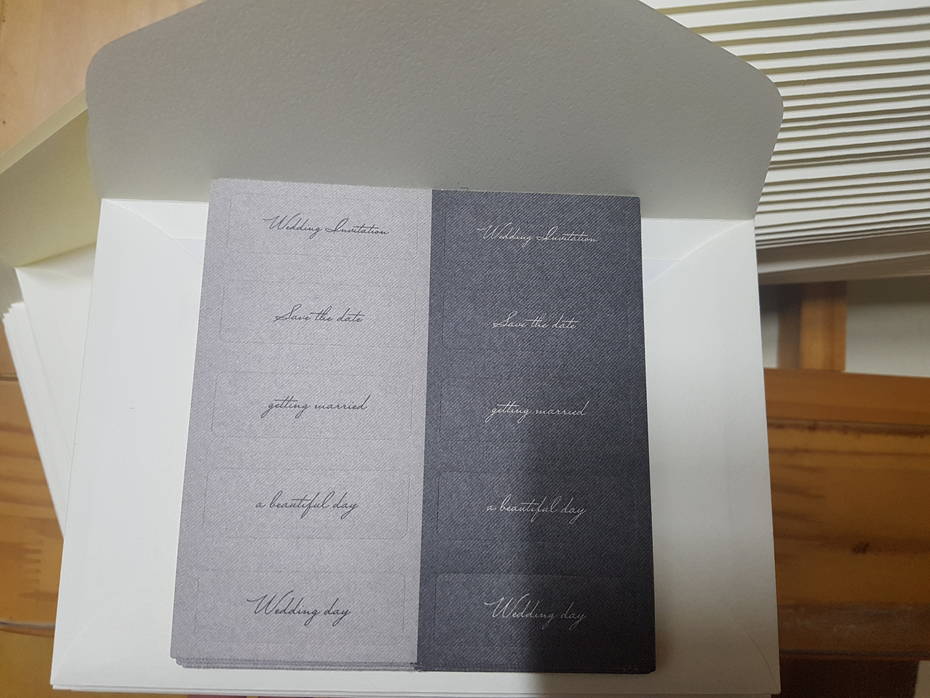 Wedding Invitation
Save the date
getting married
a beautiful day
Wedding day
Wedding Invitation
Save the date
getting married
a beautiful day
Wedding day